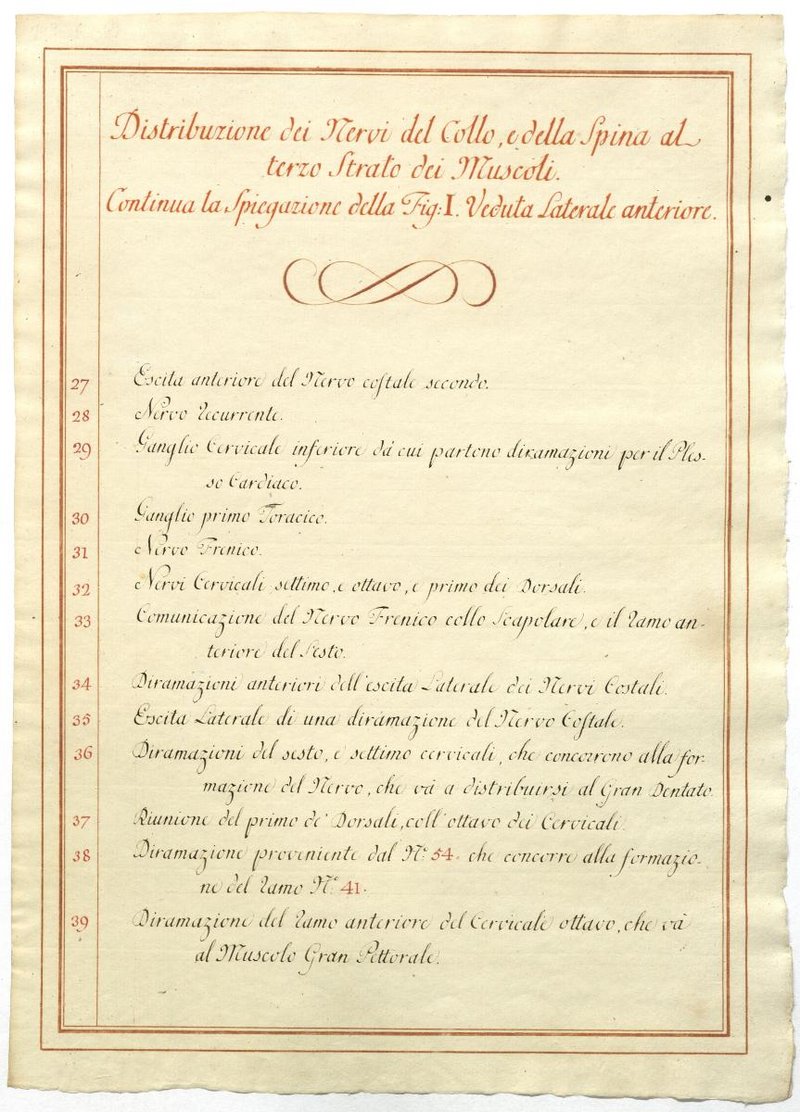 Distribuzione dei Nervi del Collo, e della Spina al
terzo Strato dei Muscoli.
Continua la Spiegazione della Fig: I. Veduta Laterale anteriore.
27 Escita anteriore del Nervo costale secondo.
28 Nervo Recurrente.
29 Ganglio Cervicale inferiore dá cui partono diramazioni per il Ples-
so Cardiaco.
30 Ganglio primo Toracico.
31 Nervo Frenico.
32 Nervi Cervicali settimo, e ottavo, e primo dei Dorsali.
33 Comunicazione del Nervo Frenico collo Scapolare, e il Ramo an-
teriore del Sesto.
34 Diramazioni anteriori dell'escita Laterale dei Nervi Costali.
35 Escita Laterale di una diramazione del Nervo Costale.
36 Diramazioni del sesto, e settimo cervicali, che concorrono alla for-
mazione del Nervo, che vá a distribuirsi al Gran Dentato.
37 Riunione del primo de' Dorsali, coll'ottavo dei Cervicali.
38 Diramazione proveniente dal N.º 54. che concorre alla formazio-
ne del Ramo N.º 41.
39 Diramazione del Ramo anteriore del Cervicale ottavo, che vá
al Muscolo Gran Pettorale.